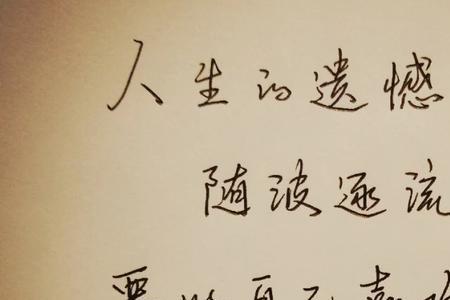 人生的遗憾
随波逐流
要